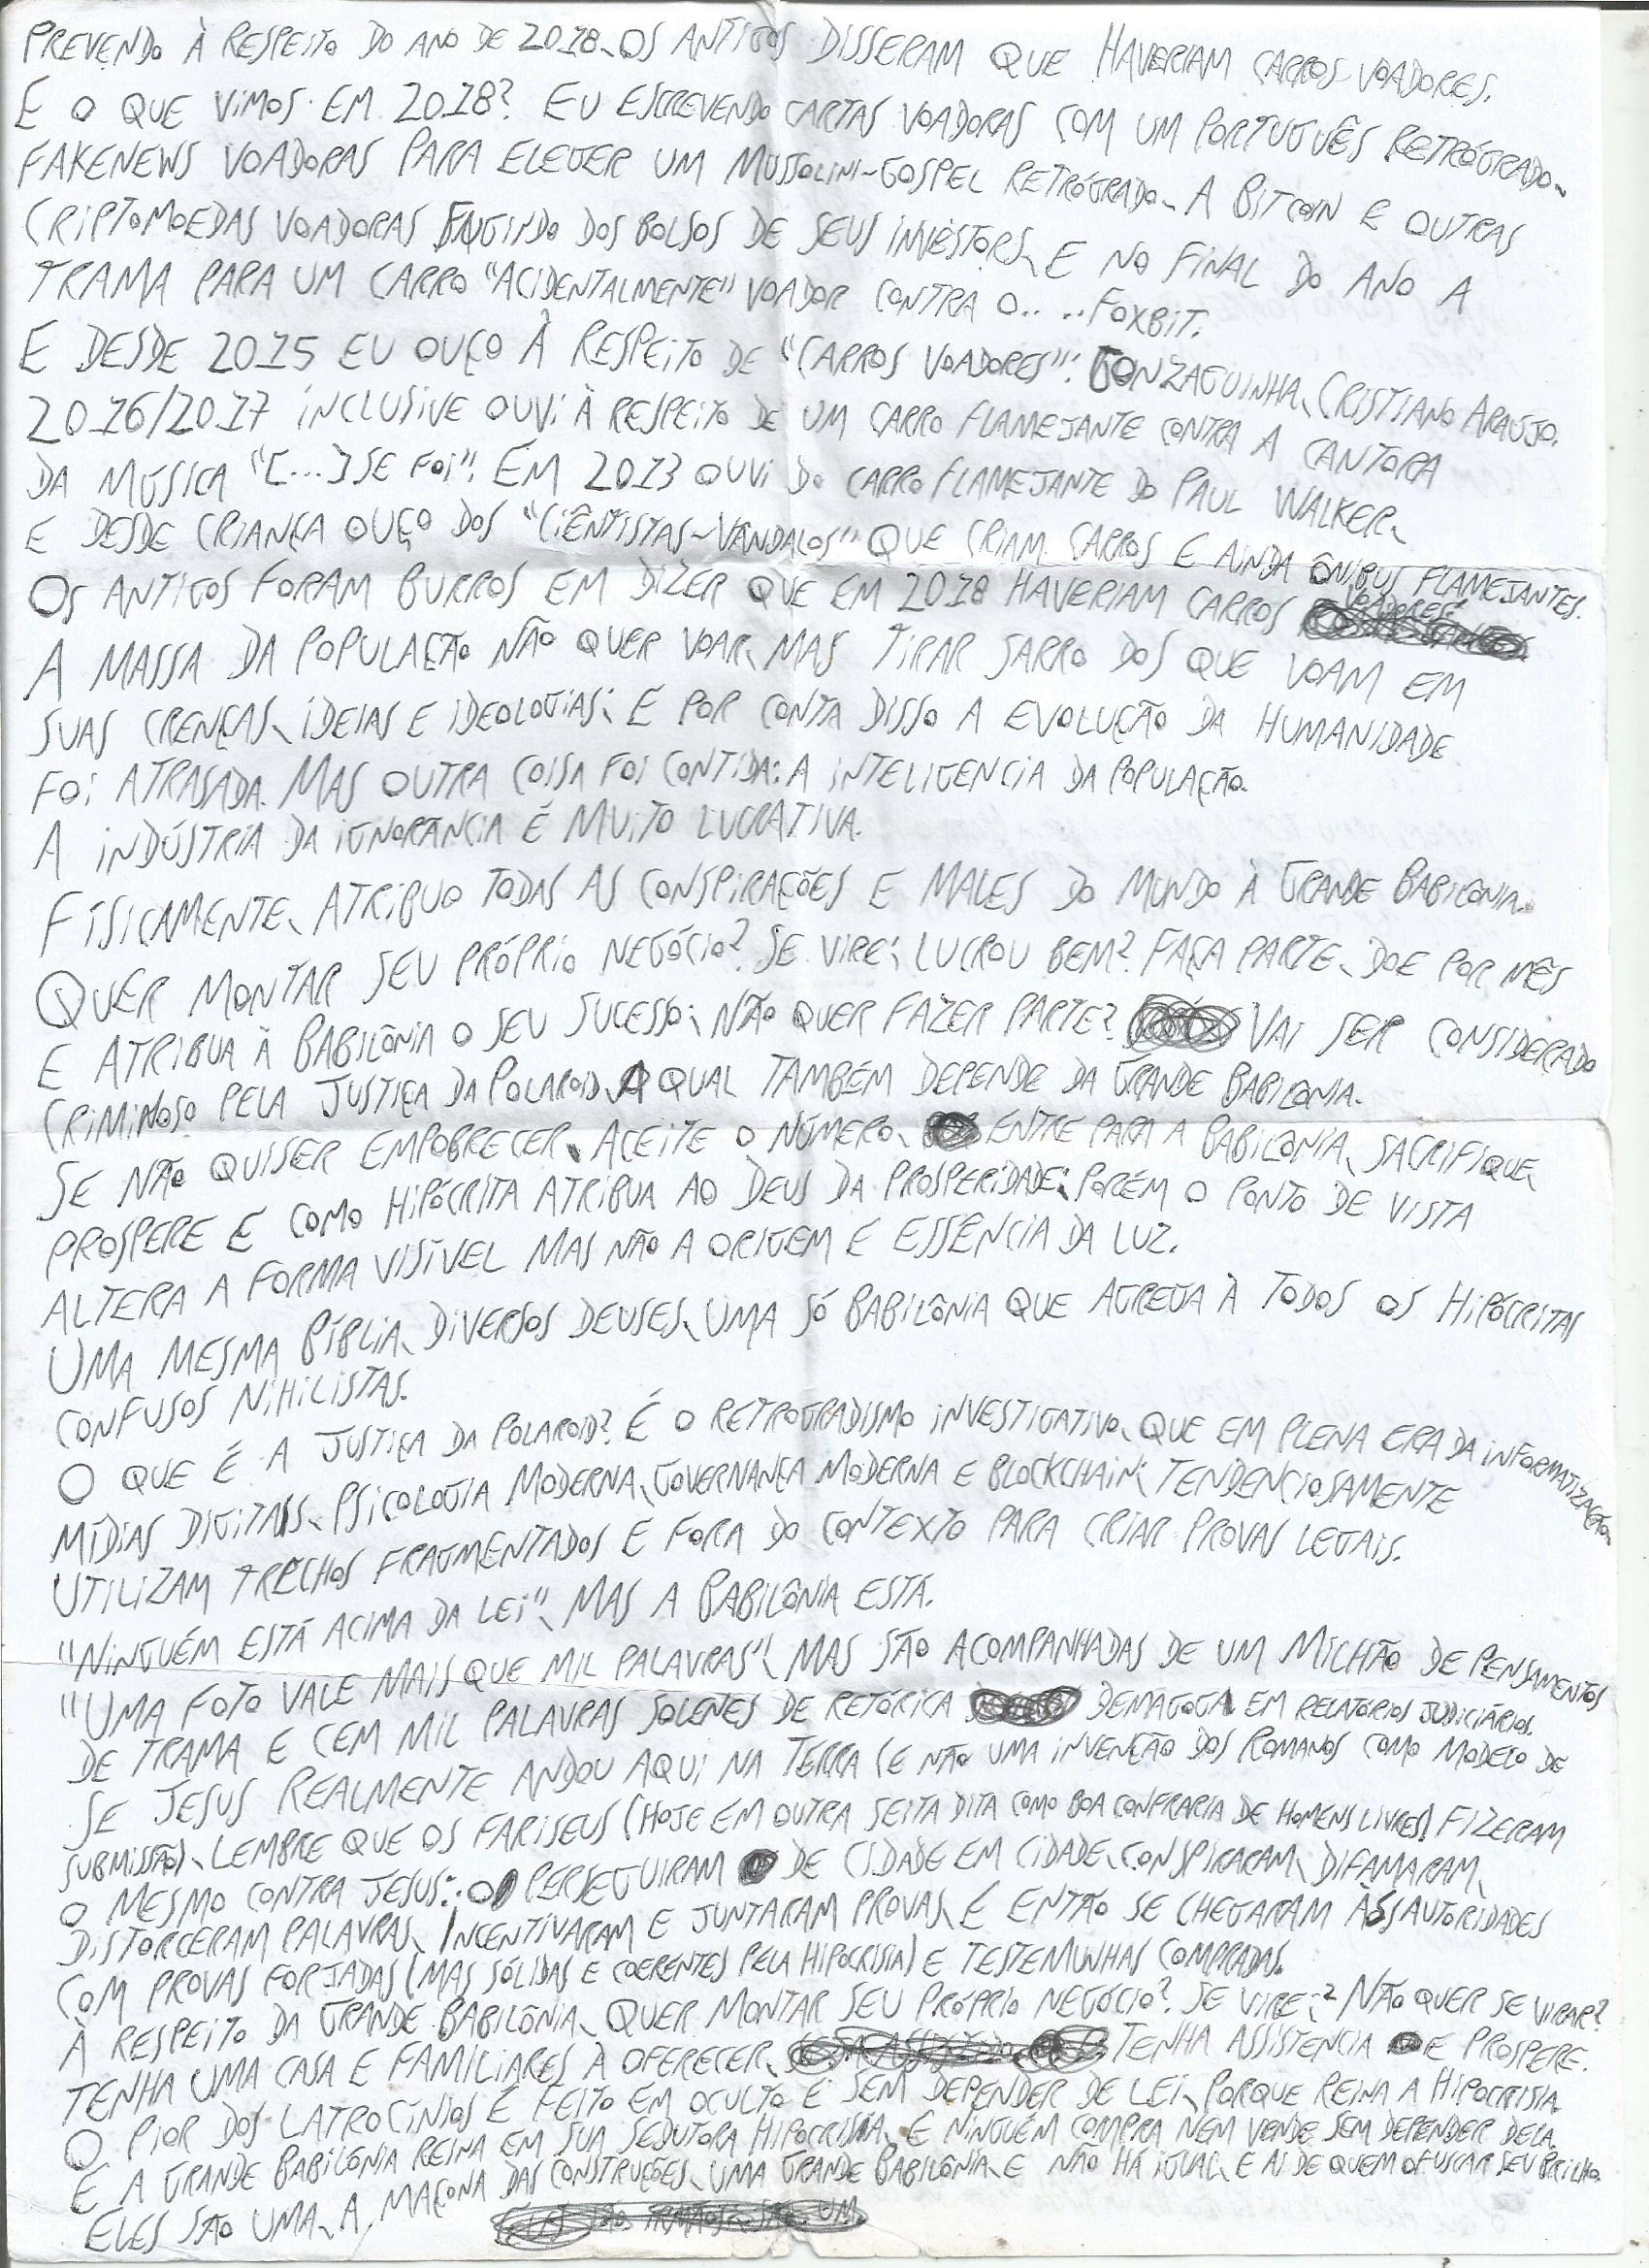 PREVENDO À RESPEITO DO ANO DE 2018, OS ANTIGOS DISSERAM QUE HAVERIAM CARROS VOADORES.
E O QUE VIMOS EM 2018? EU ESCREVENDO CARTAS VOADORAS COM UM PORTUGUÊS RETRÓGRADO,
FAKENEWS VOADORAS PARA ELEGER UM MUSSOLINI-GOSPEL RETRÓGRADO, A BITCOIN E OUTRAS
CRIPTOMOEDAS VOADORAS FUGINDO DOS BOLSOS DE SEUS INVESTORS, E NO FINAL DO ANO A
TRAMA PARA UM CARRO "ACIDENTALMENTE" VOADOR CONTRA O.. ..FOXBIT.
E DESDE 2015 EU OUÇO À RESPEITO DE "CARROS VOADORES": GONZAGUINHA, CRISTIANO ARAÚJO.
2016/2017 INCLUSIVE OUVI À RESPEITO DE UM CARRO FLAMEJANTE CONTRA A CANTORA
DA MÚSICA "[...] SE FOI". EM 2013 OUVI DO CARRO FLAMEJANTE DO PAUL WALKER,
E DESDE CRIANÇA OUÇO DOS "CIÊNTISTAS-VÂNDALOS" QUE CRIAM CARROS E AINDA ÔNIBUS FLAMEJANTES.
OS ANTIGOS FORAM BURROS EM DIZER QUE EM 2018 HAVERIAM CARROS VOADORES:
A MASSA DA POPULAÇÃO NÃO QUER VOAR, MAS TIRAR SARRO DOS QUE VOAM EM
SUAS CRENÇAS, IDEIAS E IDEOLOGIAS; E POR CONTA DISSO A EVOLUÇÃO DA HUMANIDADE
FOI ATRASADA. MAS OUTRA COISA FOI CONTIDA: A INTELIGENCIA DA POPULAÇÃO.
A INDÚSTRIA DA IGNORÂNCIA É MUITO LUCRATIVA.
FISICAMENTE, ATRIBUO TODAS AS CONSPIRAÇÕES E MALES DO MUNDO À GRANDE BABILÔNIA.
QUER MONTAR SEU PRÓPRIO NEGÓCIO? SE VIRE; LUCROU BEM? FAÇA PARTE, DOE POR MÊS
E ATRIBUA À BABILÔNIA O SEU SUCESSO; NÃO QUER FAZER PARTE? VAI SER CONSIDERADO
CRIMINOSO PELA JUSTIÇA DA POLAROID, A QUAL TAMBÉM DEPENDE DA GRANDE BABILONIA.
SE NÃO QUISER EMPOBRECER, ACEITE O NÚMERO, ENTRE PARA A BABILONIA, SACRIFIQUE,
PROSPERE E COMO HIPÓCRITA ATRIBUA AO DEUS DA PROSPERIDADE; PORÉM O PONTO DE VISTA
ALTERA A FORMA VISÍVEL MAS NÃO A ORIGEM E ESSÊNCIA DA LUZ.
UMA MESMA BÍBLIA, DIVERSOS DEUSES, UMA SÓ BABILÔNIA QUE AGREGA À TODOS OS HIPÓCRITAS
CONFUSOS NIHILISTAS.
O QUE É A JUSTIÇA DA POLAROID? É O RETROGRADISMO INVESTIGATIVO, QUE EM PLENA ERA DA INFORMATIZAÇÃO,
MÍDIAS DIGITAIS, PSICOLOGIA MODERNA, GOVERNANÇA MODERNA E BLOCKCHAIN; TENDENCIOSAMENTE
UTILIZAM TRECHOS FRAGMENTADOS E FORA DO CONTEXTO PARA CRIAR PROVAS LEGAIS.
"NINGUÉM ESTÁ ACIMA DA LEI", MAS A BABILÔNIA ESTÁ.
"UMA FOTO VALE MAIS QUE MIL PALAVRAS", MAS SÃO ACOMPANHADAS DE UM MILHÃO DE PENSAMENTOS
DE TRAMA E CEM MIL PALAVRAS SOLENES DE RETÓRICA DEMAGOGA EM RELATÓRIOS JUDICIÁRIOS.
SE JESUS REALMENTE ANDOU AQUI NA TERRA (E NÃO UMA INVENÇÃO DOS ROMANOS COMO MODELO DE
SUBMISSÃO), LEMBRE QUE OS FARISEUS (HOJE EM OUTRA SEITA DITA COMO BOA CONFRARIA DE HOMENS LIVRES) FIZERAM
O MESMO CONTRA JESUS: O PERSEGUIRAM DE CIDADE EM CIDADE, CONSPIRARAM, DIFAMARAM,
DISTORCERAM PALAVRAS, INCENTIVARAM E JUNTARAM PROVAS, E ENTÃO SE CHEGARAM ÀS AUTORIDADES
COM PROVAS FORJADAS (MAS SÓLIDAS E COERENTES PELA HIPOCRISIA) E TESTEMUNHAS COMPRADAS.
À RESPEITO DA GRANDE BABILÔNIA, QUER MONTAR SEU PRÓPRIO NEGÓCIO? SE VIRE; NÃO QUER SE VIRAR?
TENHA UMA CASA E FAMILIARES À OFERECER, TENHA ASSISTENCIA E PROSPERE.
O PIOR DOS LATROCÍNIOS É FEITO EM OCULTO E SEM DEPENDER DE LEI, PORQUE REINA A HIPOCRISIA.
E A GRANDE BABILÔNIA REINA EM SUA SEDUTORA HIPOCRISIA, E NINGUÉM COMPRA NEM VENDE SEM DEPENDER DELA.
ELES SÃO UMA, A MAÇONA DAS CONSTRUÇÕES, UMA GRANDE BABILÔNIA, E NÃO HÁ IGUAL, E AI DE QUEM OFUSCAR SEU BRILHO.